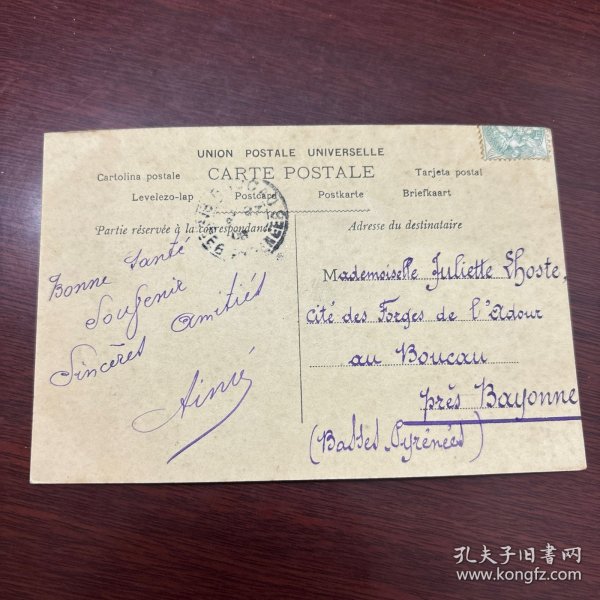 UNION POSTALE UNIVERSELLE
CARTE POSTALE
Cartolina postale
Tarjeta postal
Levelezo-lap
Postcard
Postkarte
Briefkaart
Partie réservée à la correspondance
Adresse du destinataire
Bonne Santé
Souvenir
Sincères Amitiés
Aimé
Mademoiselle Juliette Lhoste,
Cité des Forges de l'Adour
au Boucau
près Bayonne
(Basses Pyrénées)
孔夫子旧书网
www.kongfz.com